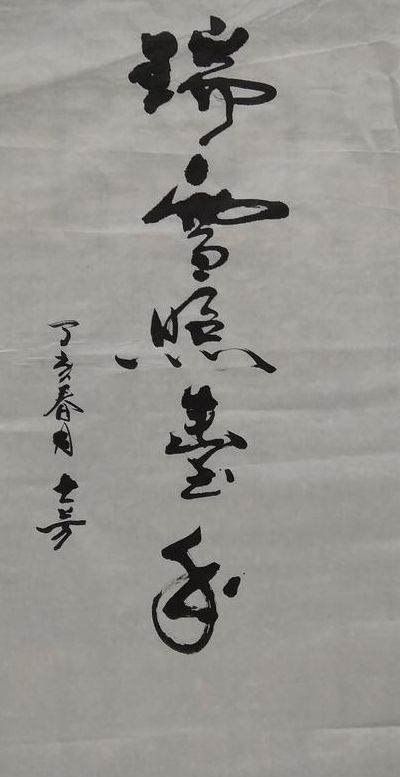 瑞雪照豐年
丁亥春月 士芳